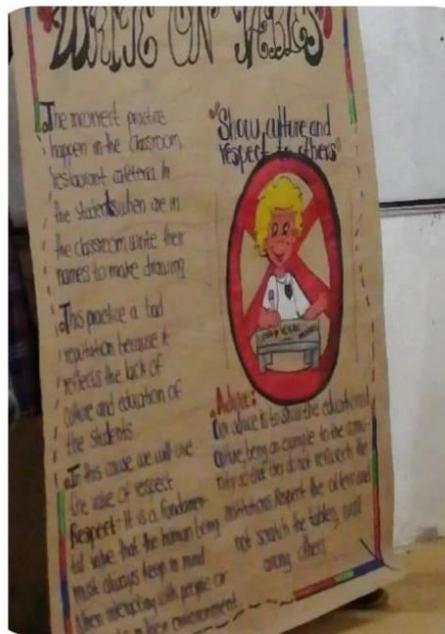 "WRITE ON TABLES"
The incorrect practice
happen in the classroom
restaurant cafeteria. In
the students when are in
the classroom write their
names to make drawing
This practice a bad
reputation because it
reflects the lack of
culture and education of
the students
In this cause we will use
the value of respect
Respect: It is a fundamen-
tal value that the human being
must always keep in mind
when interacting with people or
environment
"Show culture and
respect to others"
Advice:
advice is to show the educational
culture, being an example to the comu-
nity so that they do not
institutions. Respect the others and
not scratch the tables,
among others